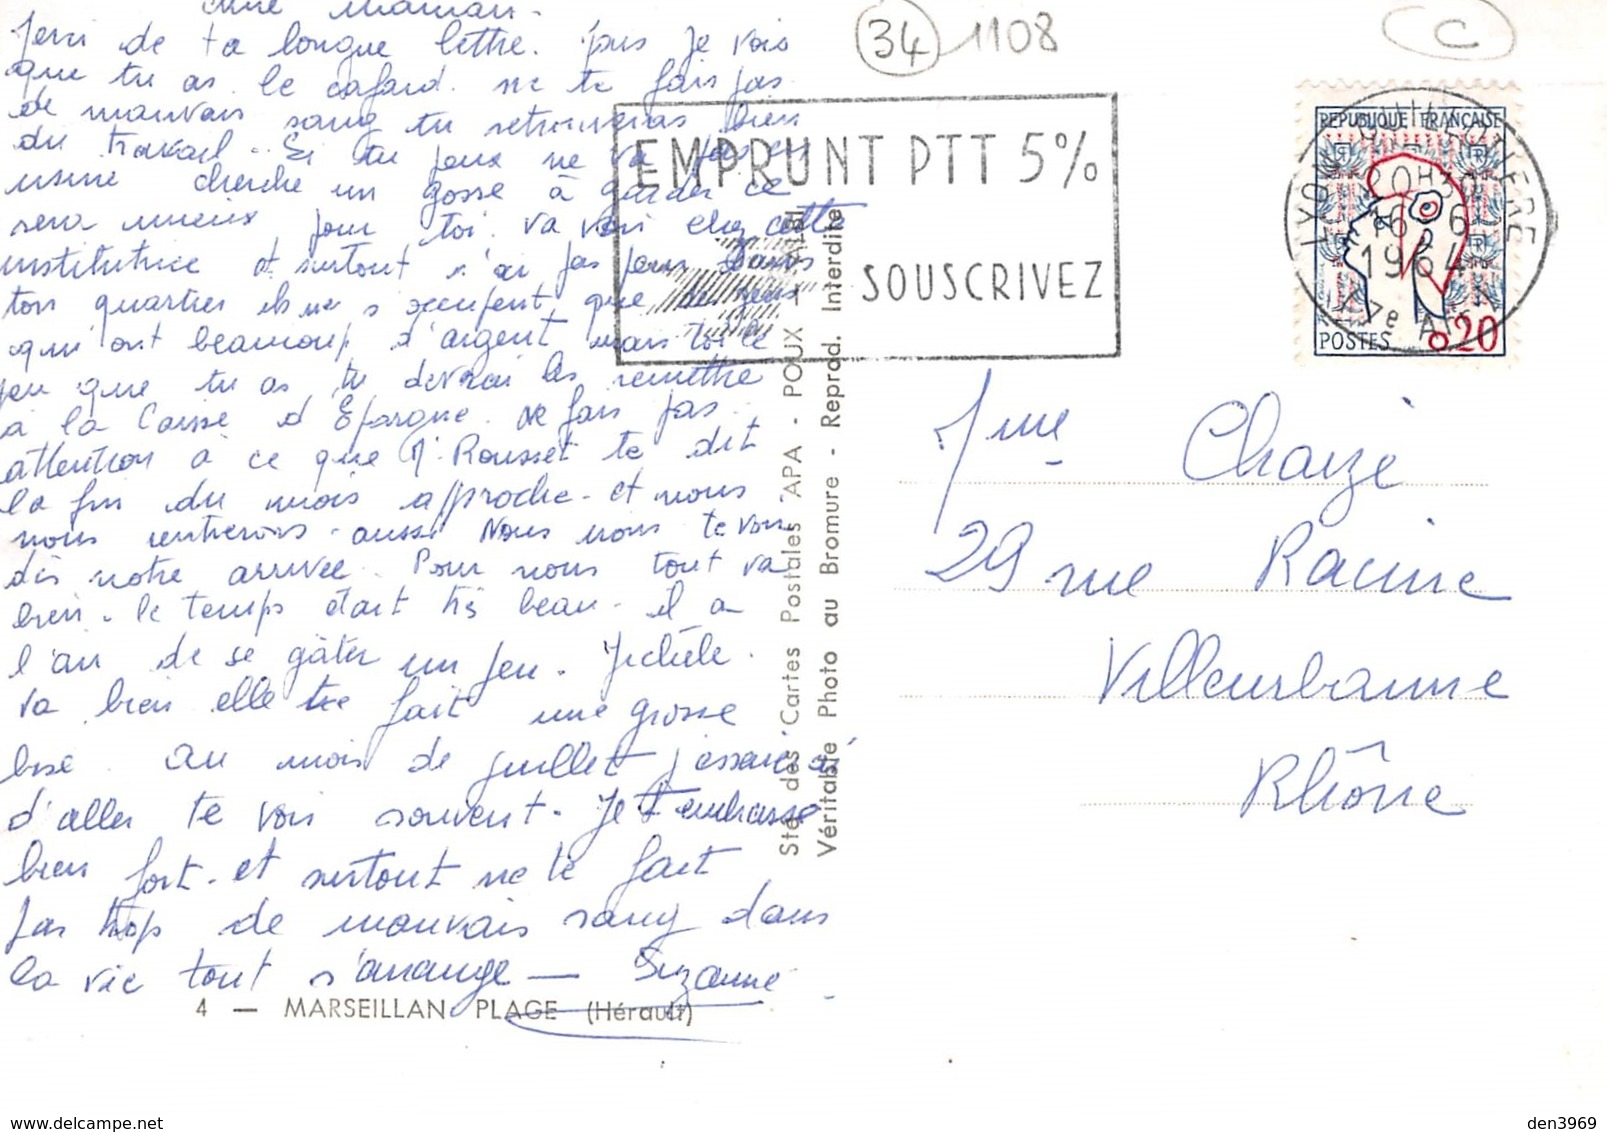 maman.
de ta longue lettre. puis je vois
que tu as le cafard. ne te fais pas
de mauvais sang tu retrouveras bien
du travail. Si tu peux ne va pas en
usine cherche un gosse à garder ce
sera mieux pour toi. va voir chez cette
institutrice et surtout pas dans
ton quartier ils ne s'occupent que de gens
qui ont beaucoup d'argent mais toi le
peu que tu as tu devrais les remettre
à la Caisse d'Epargne. ne fais pas
attention à ce que Mr Rousset te dit
la fin du mois approche. et nous
nous rentrerons aussi Nous irons te voir
dès notre arrivée. Pour nous tout va
bien. le temps était très beau. il a
l'air de se gâter un peu. Michèle.
va bien elle te fait une grosse
bise. au mois de juillet j'essaierai
d'aller te voir souvent. Je t'embrasse
bien fort. et surtout ne te fait
pas trop de mauvais sang dans
la vie tout s'arrange — Suzanne
4 — MARSEILLAN PLAGE (Hérault)
Sté des Cartes Postales APA - POUX - ALBI
Véritable Photo au Bromure - Reprod. Interdite
34 1108
C
EMPRUNT PTT 5%
SOUSCRIVEZ
REPUBLIQUE FRANÇAISE
POSTES 0,20
20H30
16 6
1964
Mme Chaize
29 rue Racine
Villeurbanne
Rhône
den3969